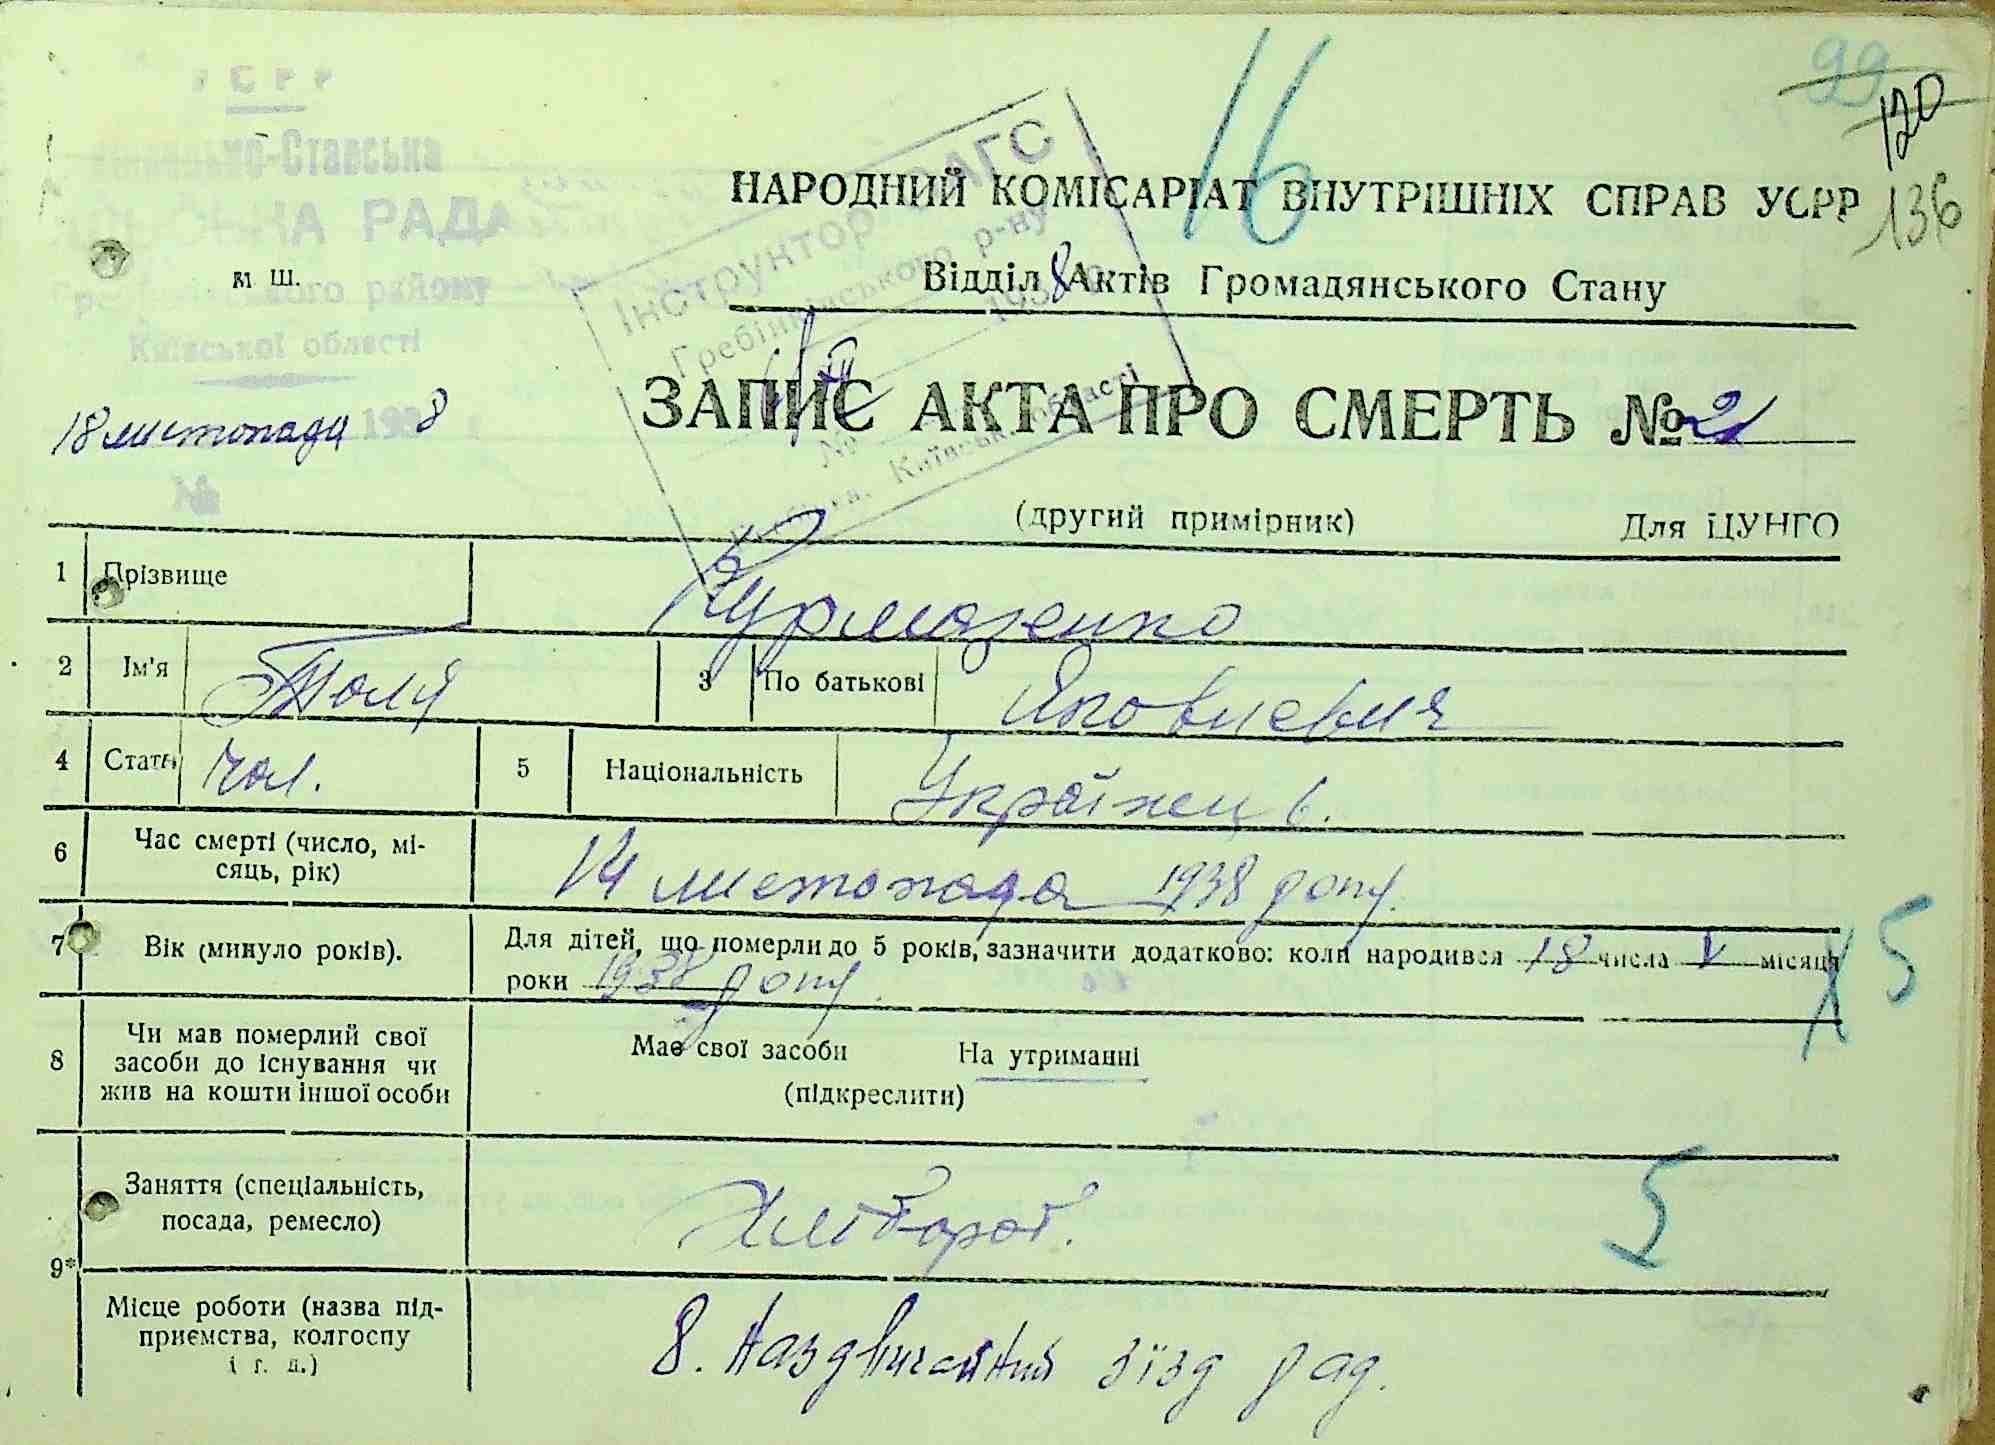 УСРР
Ставська
РАДА
району
Київської області
М Ш.
18 листопада 1938 г
№
16
99
120
136
Інструктор ЗАГС
Гребінківського р-ну
1938 р.
№
Київськ. області
НАРОДНИЙ КОМІСАРІАТ ВНУТРІШНІХ СПРАВ УСРР
Відділ Актів Громадянського Стану
ЗАПИС АКТА ПРО СМЕРТЬ № 21
(другий примірник) Для ЦУНГО
1 Прізвище Курмазенко
2 Ім'я Толя 3 По батькові
4 Стать чол. 5 Національність Українець.
6 Час смерті (число, мі-
сяць, рік) 14 листопада 1938 року.
7 Вік (минуло років). Для дітей, що померли до 5 років, зазначити додатково: коли народився 18 числа V місяця
роки 1938 року.
Х 5
8 Чи мав померлий свої
засоби до існування чи
жив на кошти іншої особи
Має свої засоби На утриманні
(підкреслити)
9* Заняття (спеціальність,
посада, ремесло) Хлібороб.
5
Місце роботи (назва під-
приємства, колгоспу
і т. д.) 8. Надзвичайний зїзд рад.